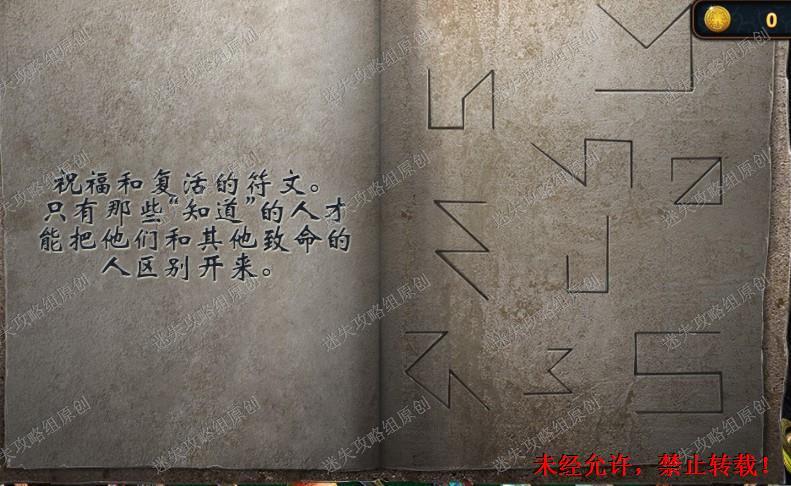 0
祝福和复活的符文。
只有那些“知道”的人才
能把他们和其他致命的
人区别开来。
迷失攻略组原创
未经允许，禁止转载！